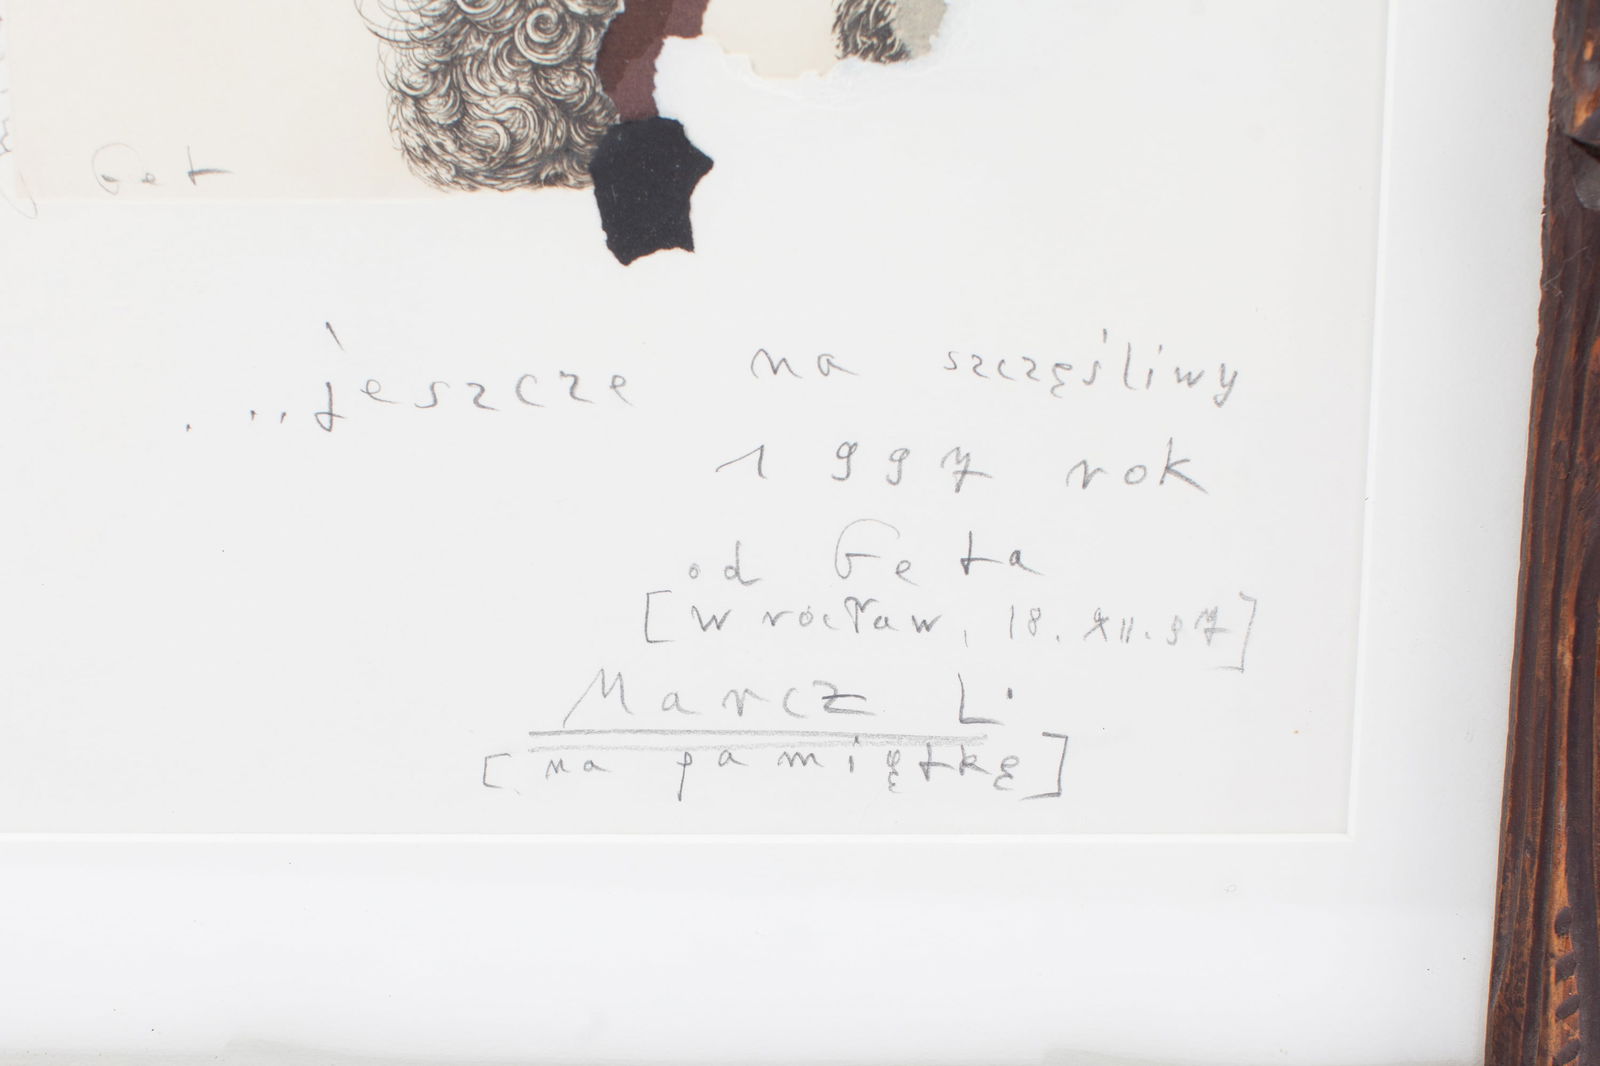 Get
...jeszcze na szczęśliwy
1997 rok
od Geta
[Wrocław, 18.XII.97]
Marcz L.
[na pamiętkę]